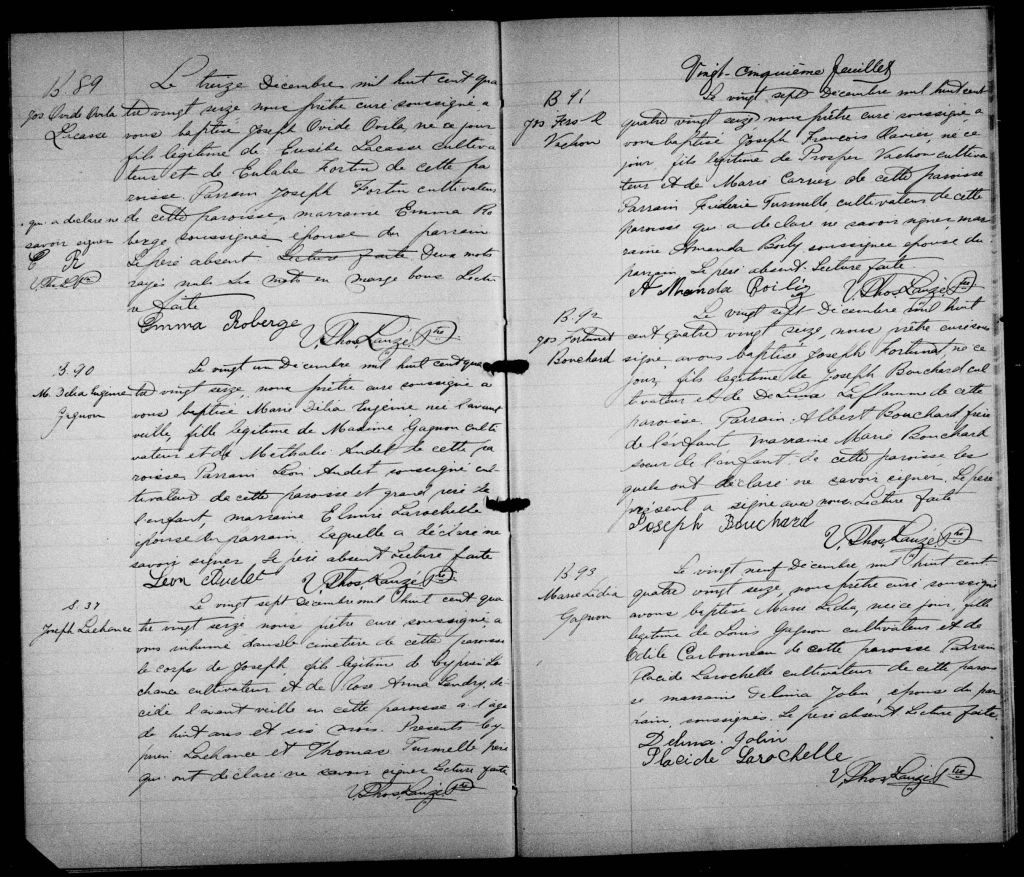 B. 89
Jos Ovide Ovila
Lacasse
Le treize Décembre mil huit cent qua
tre vingt seize nous prêtre curé soussigné a
vons baptisé Joseph Ovide Ovila, né ce jour
fils légitime de Eusèbe Lacasse cultiva
teur et de Eulalie Fortin de cette pa
roisse. Parrain Joseph Fortin cultivateur
qui a déclaré ne
savoir signer
E R
de cette paroisse, marraine Emma Ro
berge soussignés épouse du parrain
Le père absent Lecture faite Deux mots
rayés nuls Six mots en marge bons Lectu
re faite
Emma Roberge
V. Thos. Lauzé, Ptre
B. 90
M. Délia Eugénie
Gagnon
Le vingt un décembre mil huit cent qua
tre vingt seize, nous prêtre curé soussigné a
vons baptisé Marie Délia Eugénie née l'avant
veille, fille légitime de Maxime Gagnon culti
vateur et de Methalie Audet de cette pa
roisse Parrain Léon Audet soussigné cul
tivateur de cette paroisse et grand père de
l'enfant, marraine Elmire Larochelle
épouse du parrain, laquelle a déclaré ne
savoir signer. Le père absent Lecture faite
Léon Audet
V. Thos. Lauzé, Ptre
S. 37
Joseph Lachance
Le vingt sept décembre mil huit cent qua
tre vingt seize nous prêtre curé soussigné, a
vons inhumé dans le cimetière de cette paroisse
le corps de Joseph fils légitime de Cyprien La
chance cultivateur et de Rose Anna Landry, dé
cédé l'avant veille en cette paroisse à l'age
de huit ans et six mois. Présents Cy
prien Lachance et Thomas Turmelle père
qui ont déclaré ne savoir signer Lecture faite
V. Thos. Lauzé, Ptre
Vingt-cinquième feuillet
B 91
Jos Frs-X
Vachon
Le vingt sept Décembre mil huit cent
quatre vingt seize nous prêtre curé soussigné a
vons baptisé Joseph François Xavier, né ce
jour fils légitime de Prosper Vachon cultiva
teur et de Marie Carrier de cette paroisse
Parrain Fréderic Turmelle cultivateur de cette
paroisse qui a déclaré ne savoir signer, mar
raine Amanda Boily soussignée épouse du
parrain. Le père absent. Lecture faite
A Mhanda Boiliz
V. Thos. Lauzé, Ptre
B. 92
Jos Fortunat
Bouchard
Le vingt sept décembre mil huit
cent quatre vingt seize, nous prêtre curé sous
signé avons baptisé Joseph Fortunat, né ce
jour, fils légitime de Joseph Bouchard cul
tivateur et de Delvina Laflamme de cette
paroisse, Parrain Albert Bouchard frère
de l'enfant marraine Marie Bouchard
soeur de l'enfant de cette paroisse les
quels ont déclaré ne savoir signer. Le père
présent a signé avec nous. Lecture faite
Joseph Bouchard
V. Thos. Lauzé, Ptre
B. 93
Marie Lédia
Gagnon
Le vingt neuf décembre, mil huit cent
quatre vingt seize, nous prêtre curé soussigné
avons baptisé Marie Lédia, née ce jour, fille
légitime de Louis Gagnon cultivateur et de
Odile Carbonneau de cette paroisse Parrain
Placide Larochelle cultivateur de cette parois
se marraine Delima Jolin, épouse du par
rain, soussignés. Le père absent Lecture faite.
Delima Jolin
Placide Larochelle
V. Thos. Lauzé, Ptre